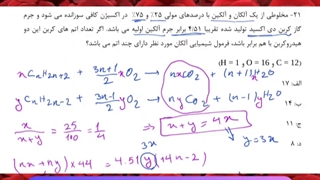 ۲۱- مخلوطی از یک آلکان و آلکین با درصدهای مولی ۲۵٪ و ۷۵٪ در اکسیژن کافی سوزانده می شود و جرم
گاز کربن دی اکسید تولید شده تقریبا ۴/۵۱ برابر جرم آلکین اولیه می باشد. اگر تعداد اتم های کربن این دو
هیدروکربن با هم برابر باشد، فرمول شیمیایی آلکان مورد نظر دارای چند اتم می باشد؟
(H = 1 و O = 16 و C = 12)
x CnH2n+2 + 3n+1/2 xO2 → nxCO2 + (n+1)H2O
الف: ۱۷
y CnH2n-2 + 3n-1/2 yO2 → nyCO2 + (n-1)yH2O
ب: ۱۴
x/x+y = 25/100 = 1/4
x+y = 4x
ج: ۱۱
y = 3x
د: ۸
3x
(nx + ny) × 44 = 4.51 (y)(14n-2)